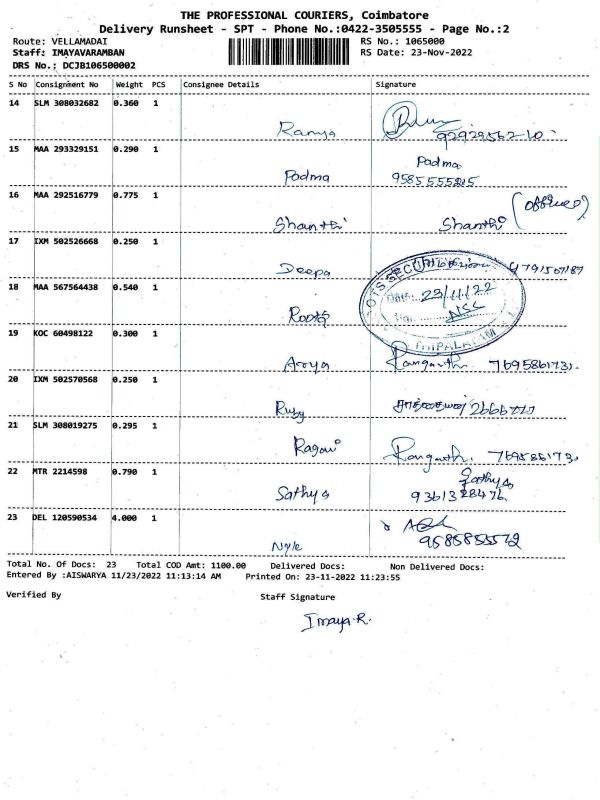 THE PROFESSIONAL COURIERS, Coimbatore
Delivery Runsheet - SPT - Phone No.:0422-3505555 - Page No.:2
Route: VELLAMADAI RS No.: 1065000
Staff: IMAYAVARAMBAN RS Date: 23-Nov-2022
DRS No.: DCJB106500002
S No Consignment No Weight PCS Consignee Details Signature
14 SLM 308032682 0.360 1
Ramya
15 MAA 293329151 0.290 1 Padma
Padma 9585555215
16 MAA 292516779 0.775 1 (office)
Shanthi Shanthi
17 IXM 502526668 0.250 1
Deepa
18 MAA 567564438 0.540 1 Date: 23/11/22
19 KOC 60498122 0.300 1
Arya Ranganth. 7695861731.
20 IXM 502570568 0.250 1
Ruby
21 SLM 308019275 0.295 1
Ragavi Ranganth. 7695861731
22 MTR 2214598 0.790 1 Sathya
Sathya 9361328476
23 DEL 120590534 4.000 1
9585855572
Total No. Of Docs: 23 Total COD Amt: 1100.00 Delivered Docs: Non Delivered Docs:
Entered By :AISWARYA 11/23/2022 11:13:14 AM Printed On: 23-11-2022 11:23:55
Verified By Staff Signature
Imaya.R.